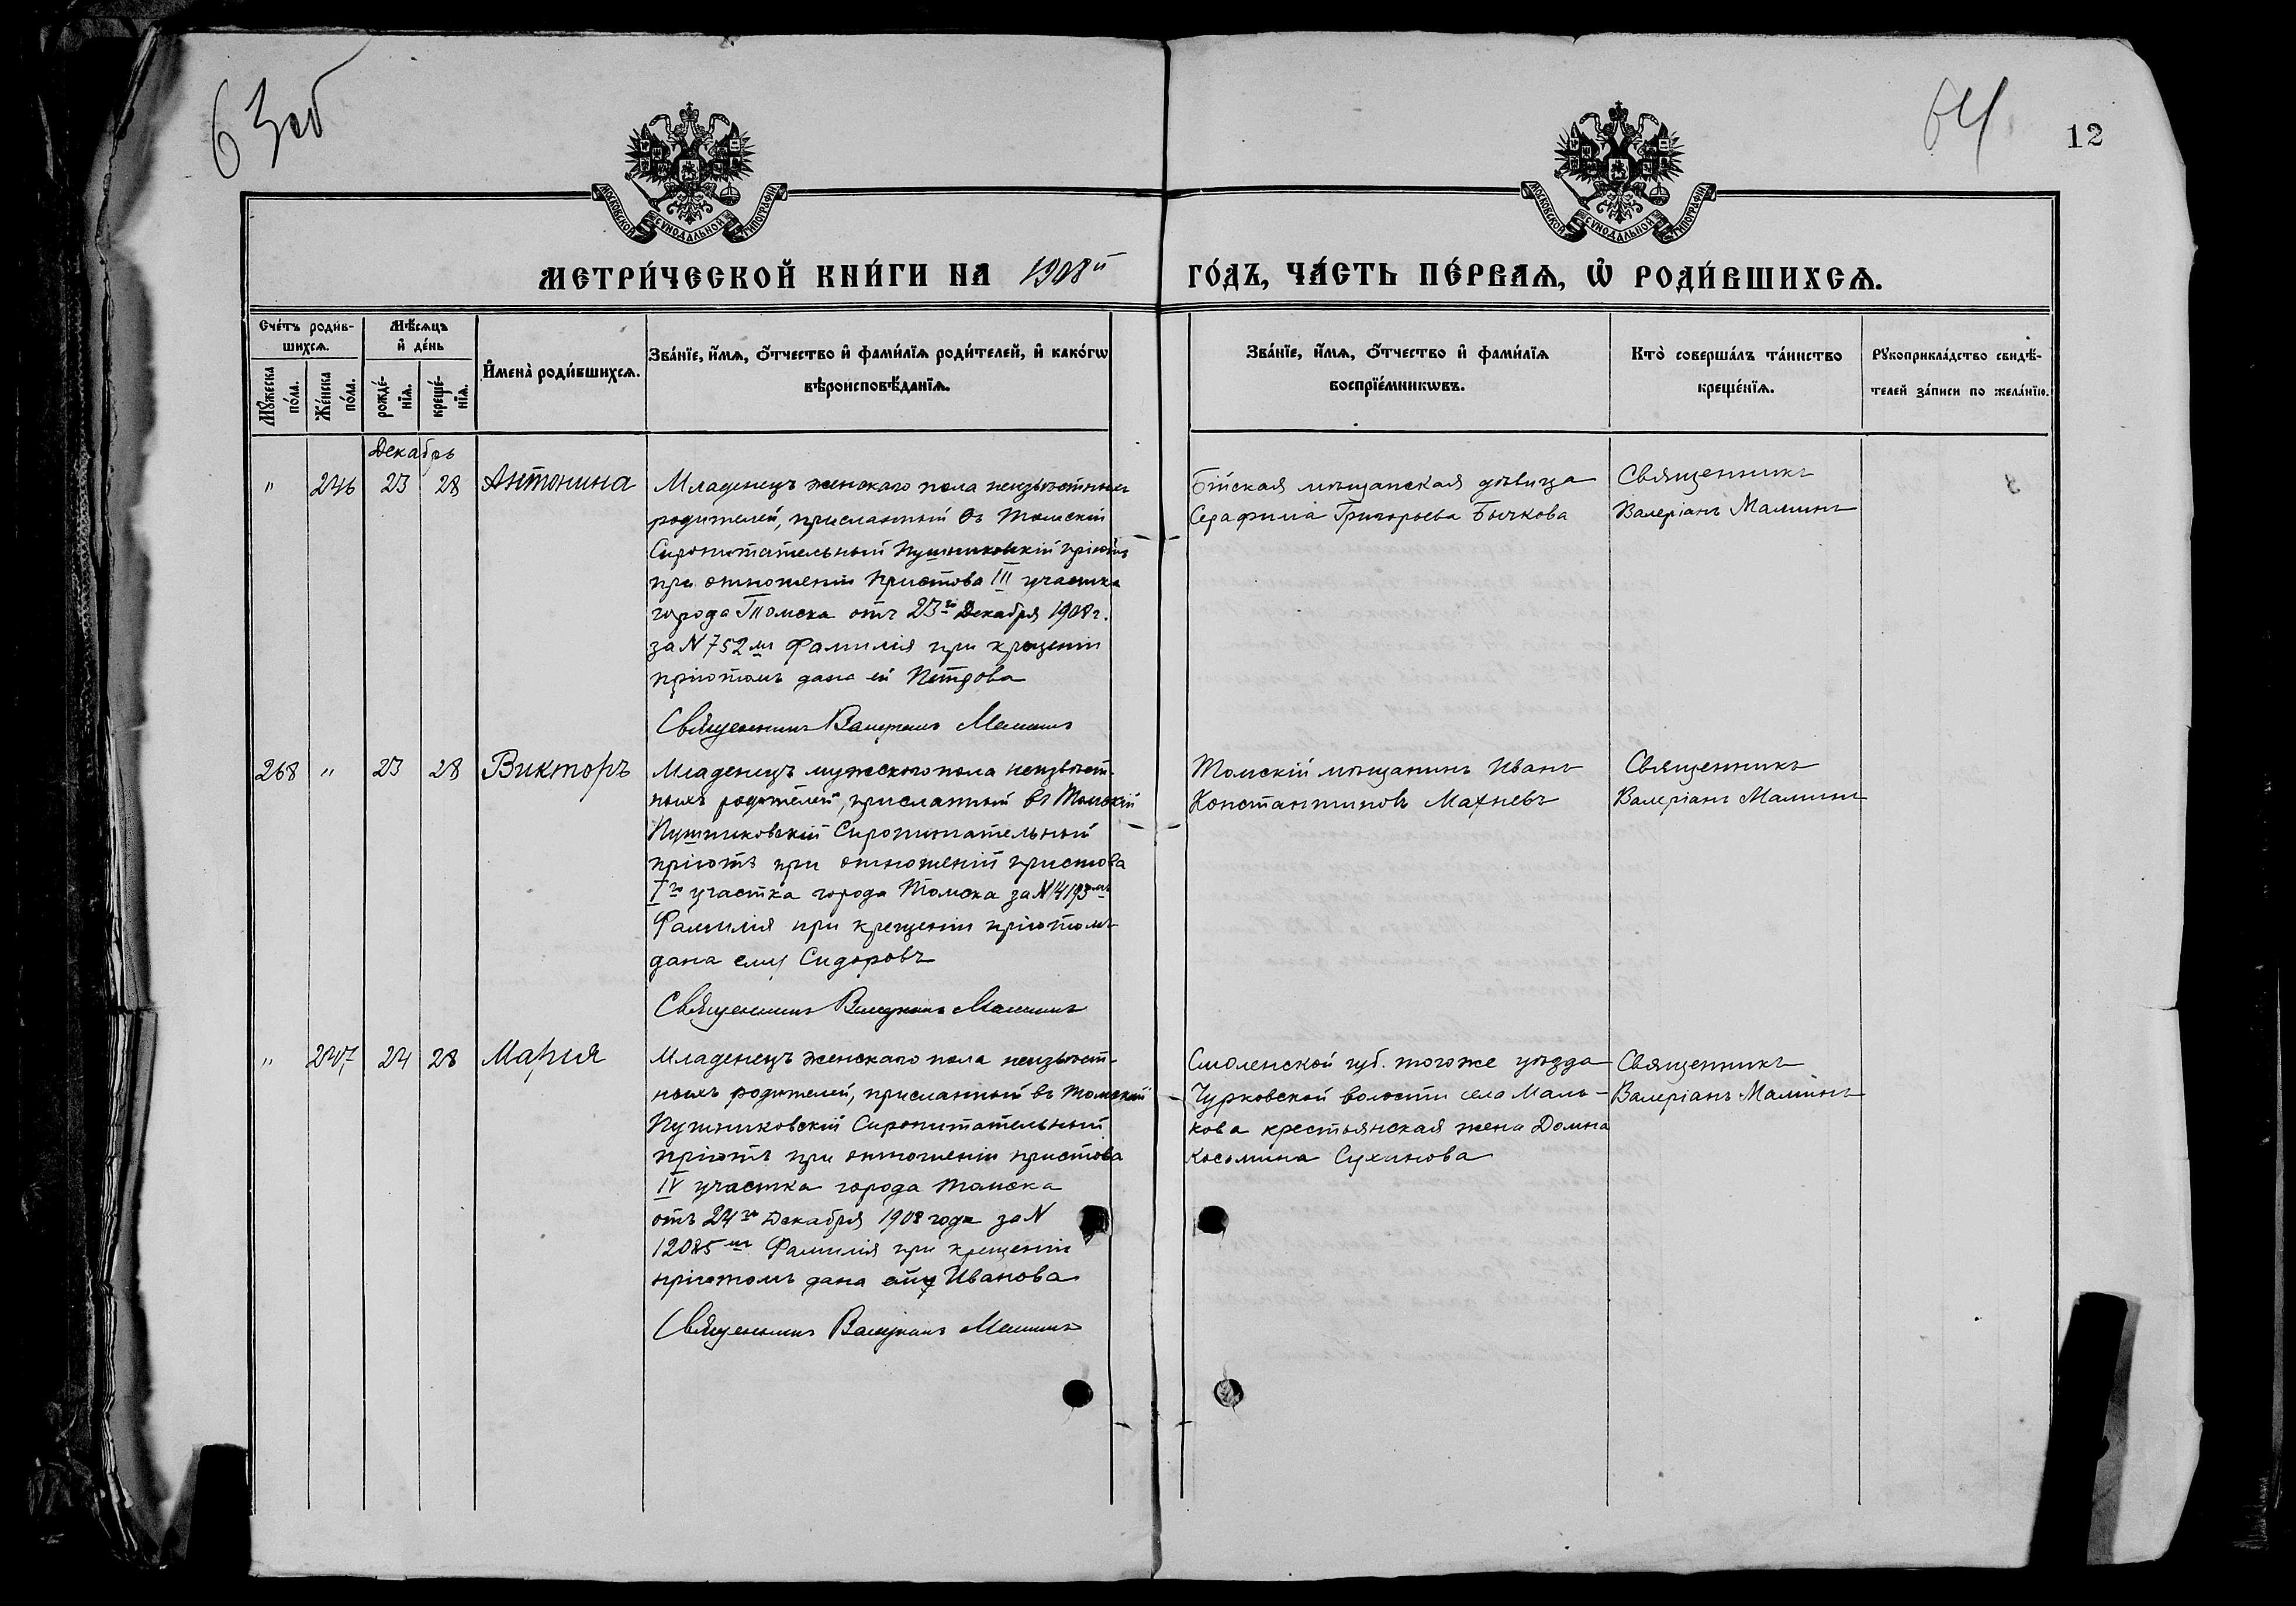 63об
64
12
МОСКОВСКОЙ СѴНОДАЛЬНОЙ ТИПОГРАФІИ
МОСКОВСКОЙ СѴНОДАЛЬНОЙ ТИПОГРАФІИ
МЕТРИ́ЧЕСКОЙ КНИ́ГИ НА 1908й ГО́ДЪ, ЧА́СТЬ ПЕ́РВАѦ, Ѡ҆ РОДИ́ВШИХСѦ.
Сче́тъ роди́в-
шихсѧ.
Мѣ́сѧцъ
и҆ де́нь
Мꙋ́жеска
по́ла.
Же́нска
по́ла.
рожде́-
нїѧ.
креще́-
нїѧ.
И҆мена̀ роди́вшихсѧ.
Зва́нїе, и҆́мѧ, ѻ҆́тчество и҆ фами́лїѧ роди́телей, и҆ како́гѡ
вѣроисповѣ́данїѧ.
Зва́нїе, и҆́мѧ, ѻ҆́тчество и҆ фами́лїѧ
воспрїе́мникѡвъ.
Кто̀ соверша́лъ та́инство
креще́нїѧ.
Рꙋкоприкла́дство свидѣ́-
телей за́писи по жела́нїю.
Декабрь
" 246 23 28 Антонина
Младенецъ женскаго пола неизвѣстныхъ
родителей, присланный въ Томскій
Сиропитательный Пушниковскій пріютъ
при отношеніи пристова III участка
города Томска отъ 23го Декабря 1908 г.
за N 752мъ Фамилія при крещеніи
пріютомъ дана ей Петрова
Священникъ Валеріанъ Маминъ
Бійская мѣщанская дѣвица
Серафима Григорьева Бычкова
Священникъ
Валеріанъ Маминъ
268 " 23 28 Викторъ
Младенецъ мужескаго пола неизвѣст-
ныхъ родителей, присланный въ Томскій
Пушниковскій Сиропитательный
пріютъ при отношеній пристова
Iго участка города Томска за N 14193мъ
Фамилія при крещеніи пріютомъ
дана ему Сидоровъ
Священникъ Валеріанъ Маминъ
Томскій мѣщанинъ Иванъ
Константиновъ Махневъ
Священникъ
Валеріанъ Маминъ
" 247 24 28 Марія
Младенецъ женскаго пола неизвѣст-
ныхъ родителей, присланный въ Томскій
Пушниковскій Сиропитательный
пріютъ при отношеніи пристова
IV участка города Томска
отъ 24го Декабря 1908 года за N
12085мъ Фамилія при крещеніи
пріютомъ дана Иванова
Священникъ Валеріанъ Маминъ
Смоленской губ. тогоже уѣзда
Чурковской волости села Маль-
кова крестьянская жена Домна
Косьмина Суханова
Священникъ
Валеріанъ Маминъ